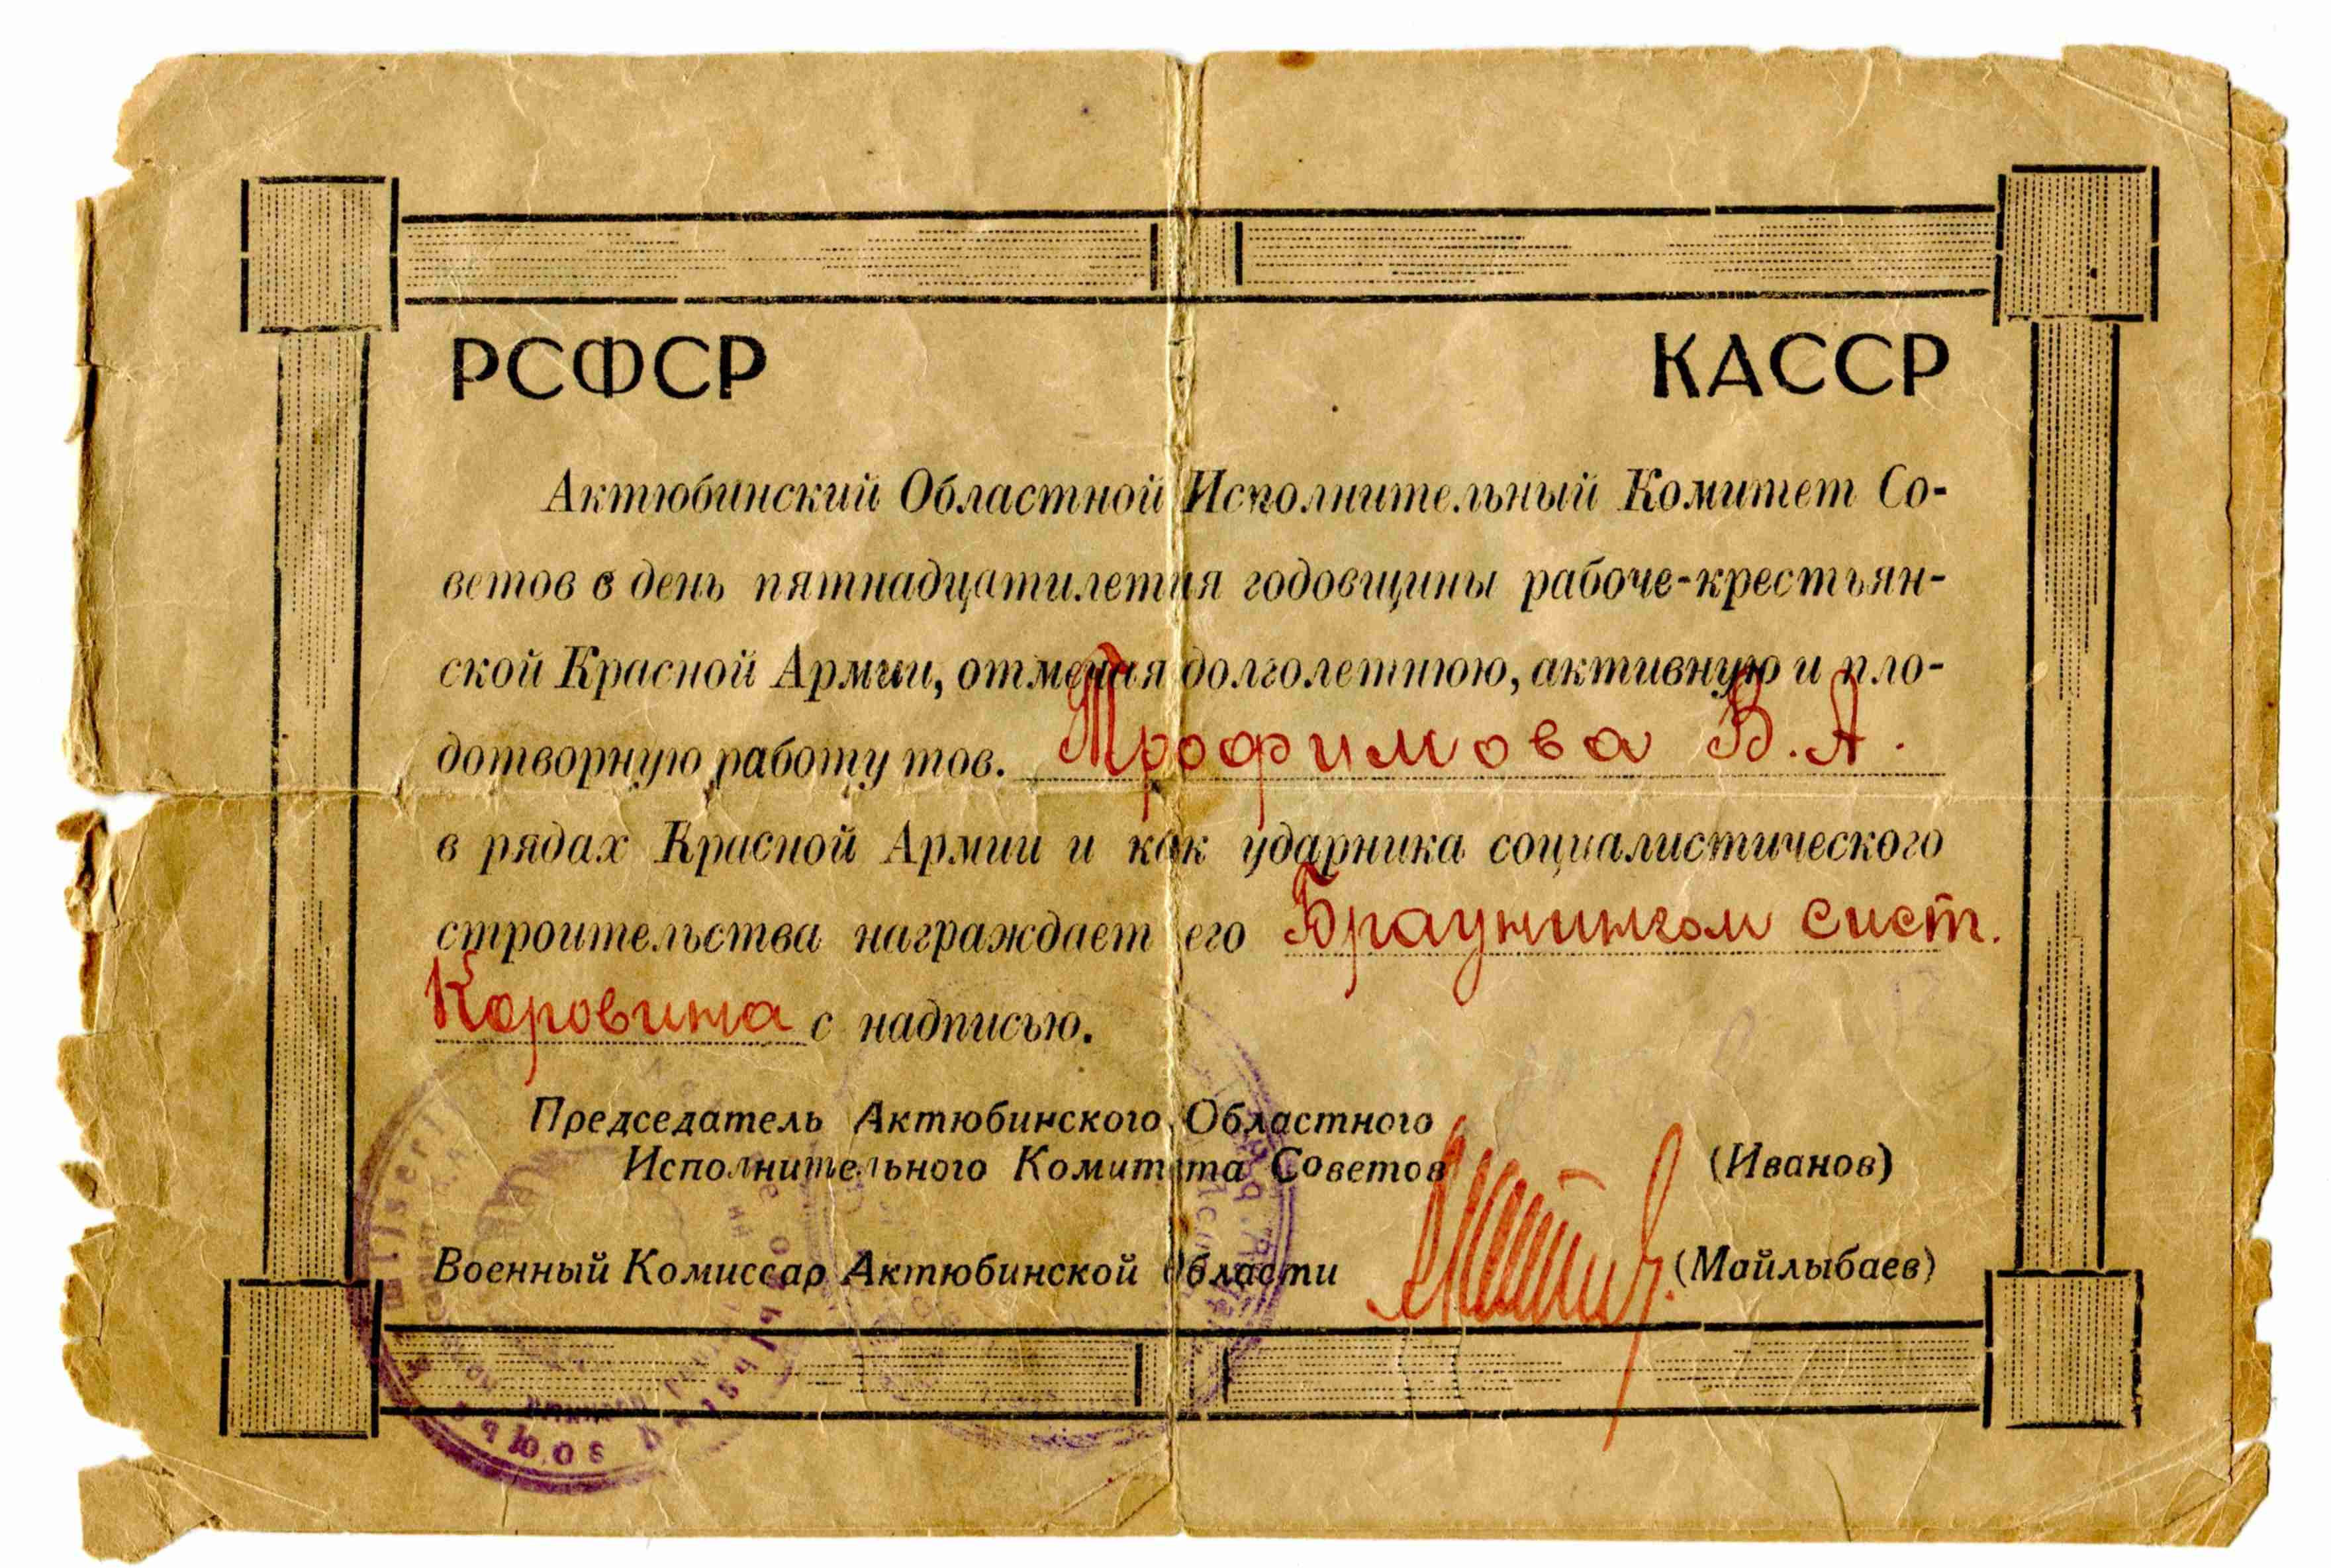 РСФСР КАССР
Актюбинский Областной Исполнительный Комитет Со-
ветов в день пятнадцатилетия годовщины рабоче-крестьян-
ской Красной Армии, отмечая долголетнюю, активную и пло-
дотворную работу тов. Трофимова В. А.
в рядах Красной Армии и как ударника социалистического
строительства награждает его Браунингом сист.
Коровина с надписью.
Председатель Актюбинского Областного
Исполнительного Комитета Советов (Иванов)
Военный Комиссар Актюбинской Области (Майлыбаев)